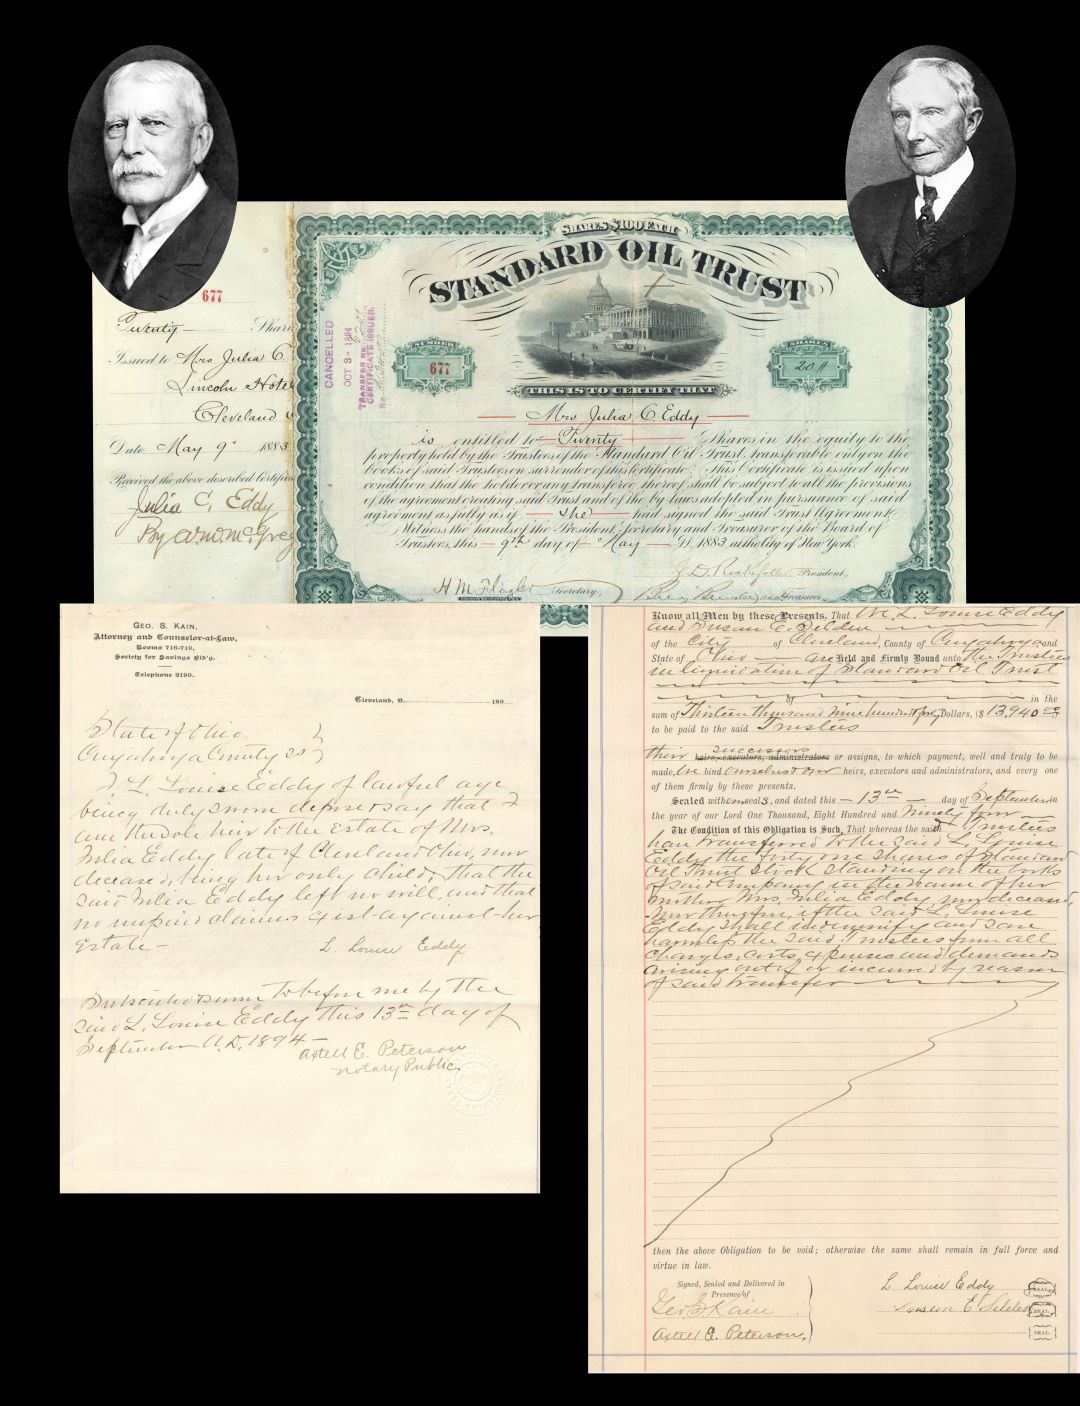 677
Twenty Shares
Issued to Mrs Julia C.
Lincoln Hotel
Cleveland O
Date May 9" 1883
Received the above described Certificate
Julia C. Eddy
By
SHARES $100 EACH
STANDARD OIL TRUST
CANCELLED
OCT 3 - 1894
TRANSFER No.
CERTIFICATE ISSUED.
No.
NUMBER
677
SHARES
20
THIS IS TO CERTIFY THAT
Mrs Julia C Eddy
is entitled to Twenty Shares in the equity to the
property held by the Trustees of the Standard Oil Trust, transferable only on the
books of said Trustees on surrender of this Certificate. This Certificate is issued upon
condition that the holder or any transferee thereof shall be subject to all the provisions
of the agreement creating said Trust and of the by-laws adopted in pursuance of said
agreement as fully as if she had signed the said Trust Agreement.
Witness the hands of the President, Secretary and Treasurer of the Board of
Trustees, this 9th day of May 1883 at the City of New York.
J. D. Rockefeller President,
H M Flagler Secretary,
Treasurer
GEO. S. KAIN,
Attorney and Counselor-at-Law,
Rooms 716-719,
Society for Savings Bld'g.
Telephone 2199.
Cleveland, O. 189
State of Ohio
Cuyahoga County ss
I, L. Louise Eddy of lawful age
being duly sworn depose & say that I
am the sole heir to the Estate of Mrs.
Julia Eddy late of Cleveland Ohio, now
deceased, being her only child, that the
said Julia Eddy left no will, and that
no unpaid claims exist against her
Estate -
L. Louise Eddy
Subscribed & sworn to before me by the
said L. Louise Eddy this 13th day of
September A.D. 1894 -
Axtell E. Peterson
Notary Public
Know all Men by these Presents, That We L. Louise Eddy
and Susan E. Selden
of the City of Cleveland, County of Cuyahoga and
State of Ohio are Held and Firmly Bound unto the Trustees
in liquidation of Standard Oil Trust
of in the
sum of Thirteen thousand nine hundred forty Dollars, ($13,940 00)
to be paid to the said Trustees
their successors
heirs, executors, administrators or assigns, to which payment, well and truly to be
made, we bind ourselves & our heirs, executors and administrators, and every one
of them firmly by these presents.
Sealed with our seals, and dated this 13th day of September in
the year of our Lord One Thousand, Eight Hundred and Ninety four
The Condition of this Obligation is Such, That whereas the said Trustees
have transferred to the said L. Louise
Eddy the forty one shares of Standard
Oil Trust Stock standing on the books
of said Company in the name of her
mother Mrs. Julia Eddy, now deceased,
Now therefore, if the said L. Louise
Eddy shall indemnify and save
harmless the said Trustees from all
charges, costs, expenses and demands
arising out of or incurred by reason
of said transfer
then the above Obligation to be void; otherwise the same shall remain in full force and
virtue in law.
Signed, Sealed and Delivered in
Presence of
Geo. S. Kain
Axtell E. Peterson.
L Louise Eddy SEAL.
Susan E. Selden SEAL.
SEAL.